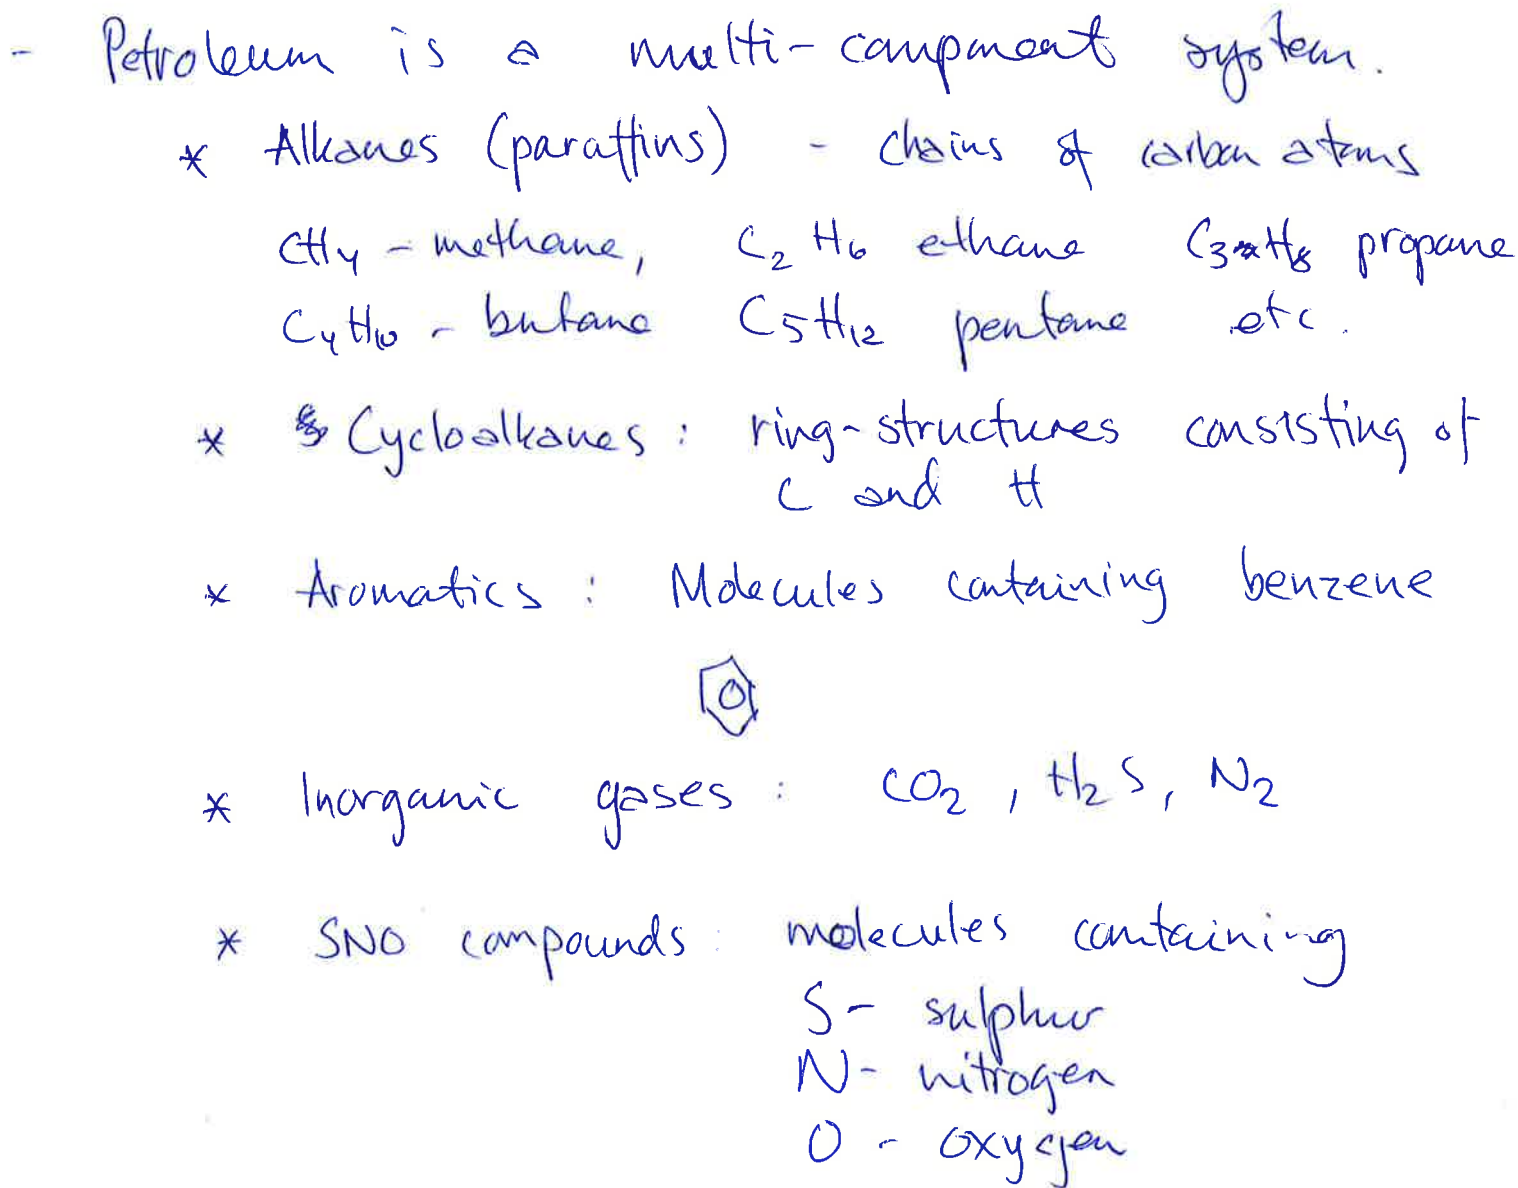 - Petroleum is a multi-component system.
* Alkanes (paraffins) - chains of carbon atoms
CH4 - methane, C2H6 ethane C3H8 propane
C4H10 - butane C5H12 pentane etc.
* Cycloalkanes : ring-structures consisting of
C and H
* Aromatics : Molecules containing benzene
* Inorganic gases : CO2, H2S, N2
* SNO compounds : molecules containing
S - sulphur
N - nitrogen
O - oxygen